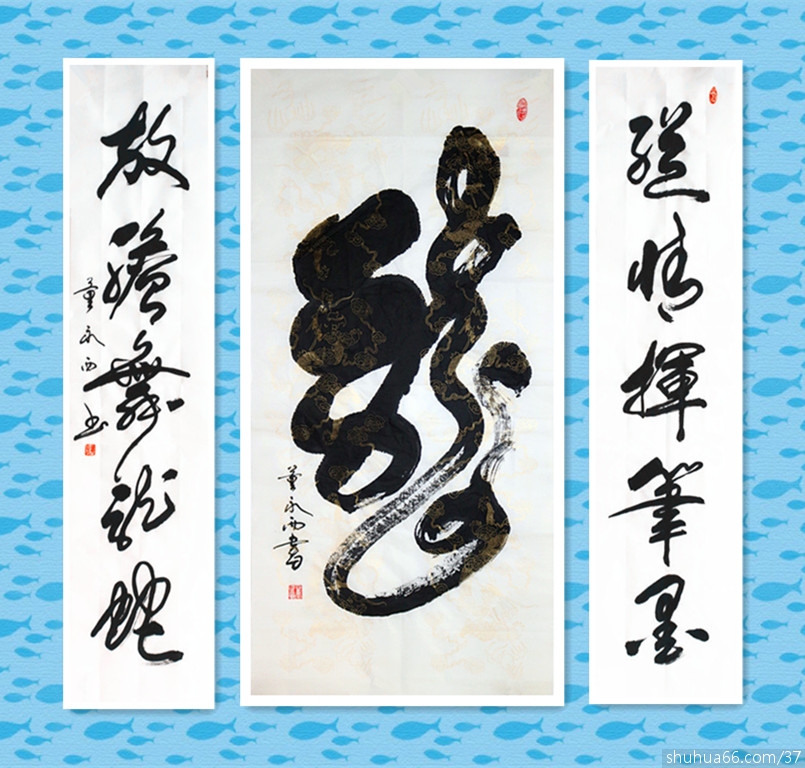 縱情揮筆墨
龍
董永西書
放膽舞龍蛇
董永西书
shuhua66.com/37